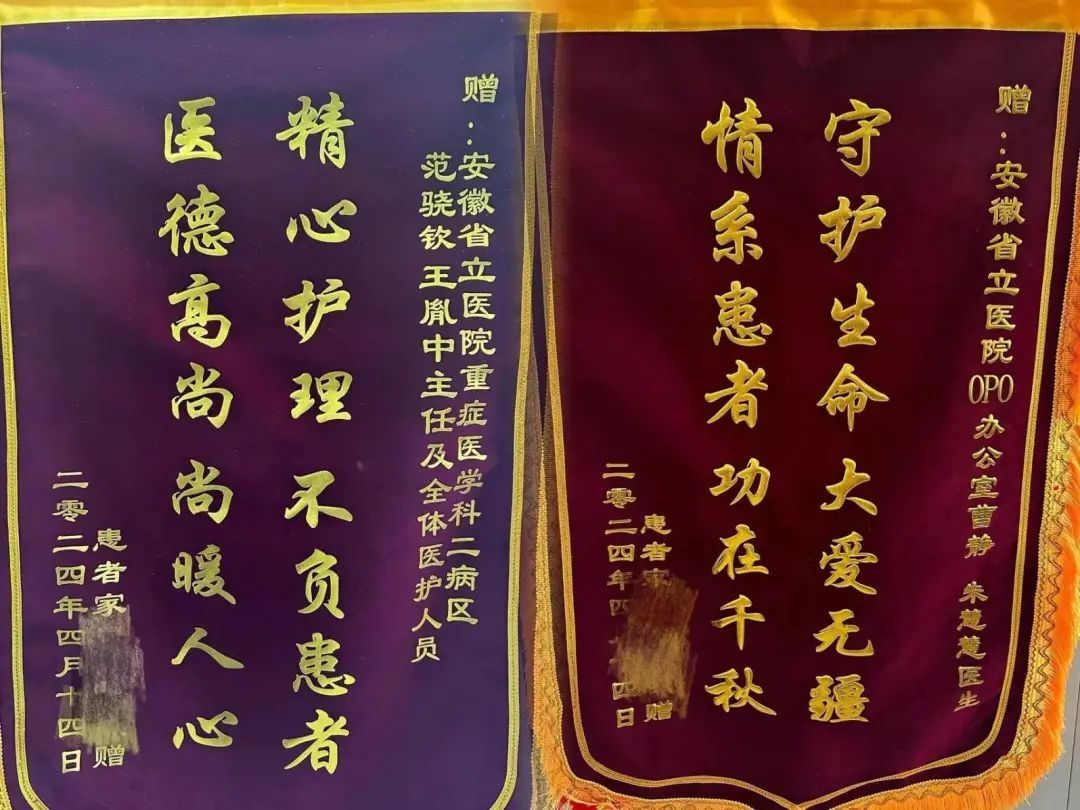 赠：安徽省立医院重症医学科二病区
范骁钦王胤中主任及全体医护人员
精心护理 不负患者
医德高尚 尚暖人心
患者家 赠
二零二四年四月十四日
赠：安徽省立医院OPO办公室曹静 朱慧慧医生
守护生命大爱无疆
情系患者功在千秋
患者家 赠
二零二四年四 四日